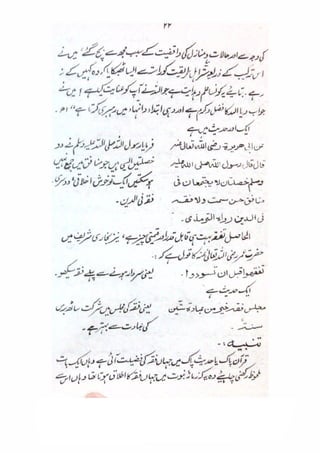 ۲۲
کی وجہ سے اور حالات و منازل کی واقفیت کے سبب مجھ سے پچ گئے میں نے
اس ترکیب کے ذریعہ تمام طریقت کو راستہ سے ایسا بھٹکایا کہ وہ کہیں کے نہ
رہے۔ بتایئے یہ کونسا علم و ہدایت ہے جو اللہ نے آپ کو عنایت کیا ہے؟ میں نے
جواب دیا اللہ کا فضل و کرم ہے اور وہی ابتدا و انتہا میں رہبری کرتا ہے"
ایک اور حدیث میں ہے
عن ابی هریرة رضی الله تعالی عنہ
قال قال رسول الله صلی الله علیہ
وسلم خصلتان لا یجتمعان فی
منافق حسن سمت ولا فقہ
فی الدین رواہ الترمذی۔
فرمایا رسول اللہ صلی اللہ علیہ وسلم نے دو
خصلتیں ایسی ہیں جو منافق میں جمع نہیں
ہو سکتیں ایک تو خوش اخلاقی دوسری
فقہ فی الدین۔
الحاصل تفقہ بہت ہی قابل قدر اور قیمتی چیز ہے، نیز بخاری شریف میں
حضرت عمر رضی اللہ تعالی عنہ کا قول ہے کہ:
تفقهوا قبل ان تسودوا۔
یعنی سردار ہونے سے پہلے فقہ سیکھو۔
ایک حدیث ہے
مجلس فقہ خیر من عبادة ستین
سنة۔
یعنی فقہ کی مجلس میں شرکت ساٹھ برس
کی عبادت سے بہتر ہے۔
تنبیہ:۔
قرآن پاک یا حدیث پاک میں جہاں فقہ کی فضیلت آئی ہے وہاں ایک بات
ملحوظ رکھنی چاہیے وہ یہ کہ زمانہ نبوت میں جہاں فقہ کا اطلاق ہوتا تھا وہاں اس سے